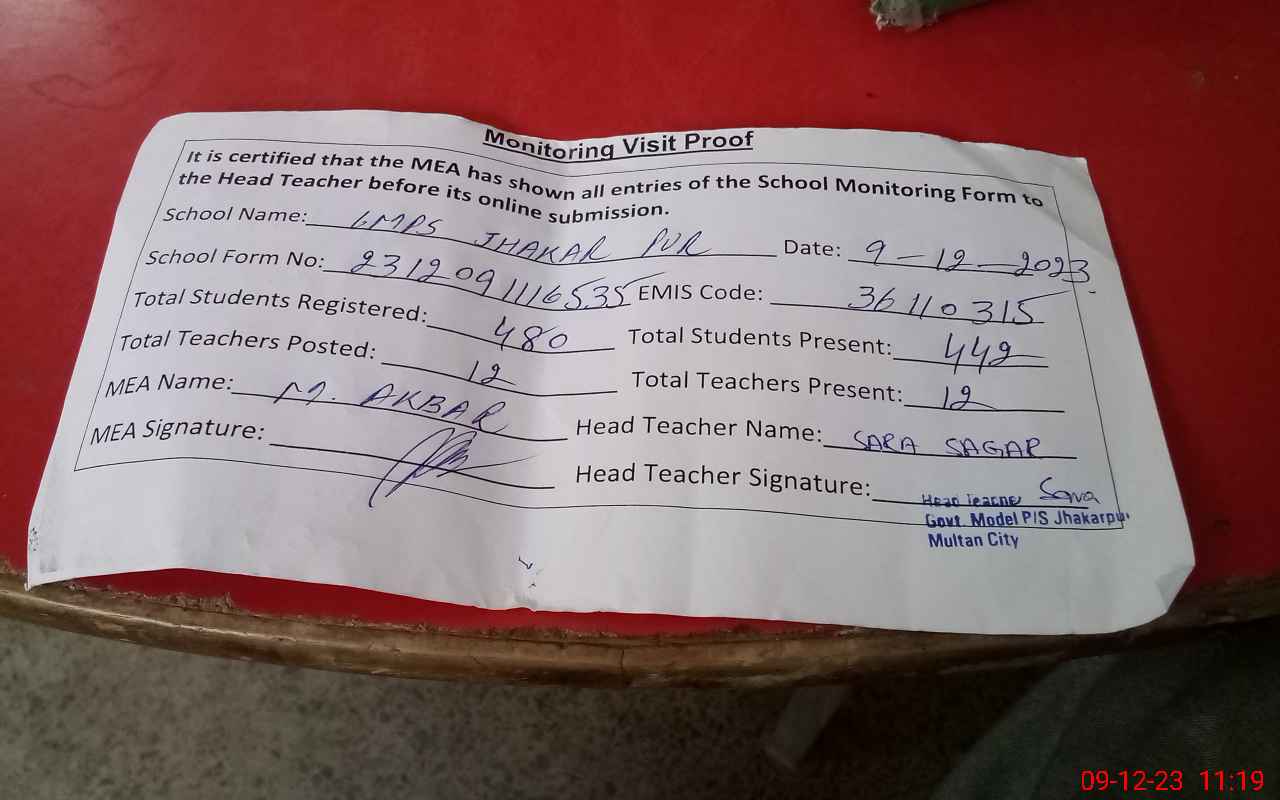 Monitoring Visit Proof
It is certified that the MEA has shown all entries of the School Monitoring Form to
the Head Teacher before its online submission.
School Name: GMPS JHAKAR PUR Date: 9-12-2023
School Form No: 2312091116535 EMIS Code: 36110315
Total Students Registered: 480 Total Students Present: 442
Total Teachers Posted: 12 Total Teachers Present: 12
MEA Name: M. AKBAR Head Teacher Name: SARA SAGAR
MEA Signature: Head Teacher Signature: Sara
Head Teacher
Govt. Model P/S Jhakarpur
Multan City
09-12-23 11:19